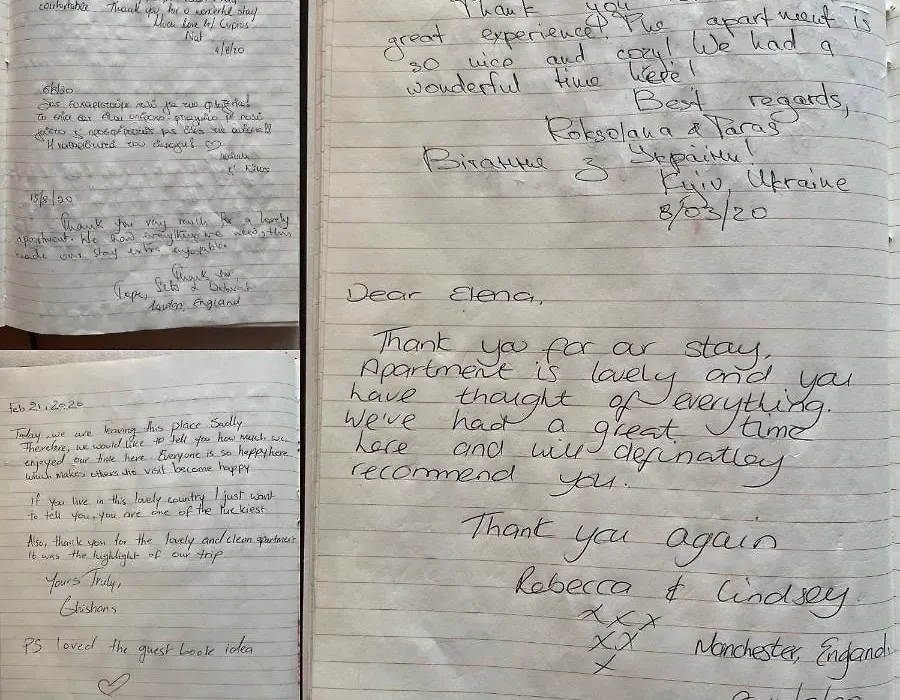 comfortable. Thank you for a wonderful stay
Much love to Cyprus
Nat
4/8/20
Σας ευχαριστούμε πολύ για την
15/8/20
Thank you very much for a lovely
apartment. We how everything we need, this
made our stay extra enjoyable.
Thank you,
London, England
feb 21, 2020
Today, we are leaving this place Sadly
Therefore, we would like to tell you how much we
enjoyed our time here. Everyone is so happy here
which makes others who visit become happy
If you live in this lovely country I just want
to tell you, you are one of the luckiest
Also, thank you for the lovely and clean apartment
It was the highlight of our trip
Yours Truly,
Ghishans
PS loved the guest book idea
Thank you
great experience! The apartment is
so nice and cozy! We had a
wonderful time here!
Best regards,
Roksolana & Taras
Вітання з України!
Kyiv, Ukraine
8/03/20
Dear Elena,
Thank you for our stay.
Apartment is lovely and you
have thought of everything.
We've had a great time
here and will definatley
recommend you.
Thank you again
Rebecca & Lindsey
xxx
xx
x
Manchester, Engand